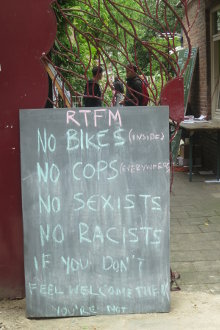 RTFM
NO BIKES (INSIDE)
NO COPS (EVERYWHERE)
NO SEXISTS
NO RACISTS
IF YOU DON'T
FEEL WELCOME THEN
YOU'RE NOT